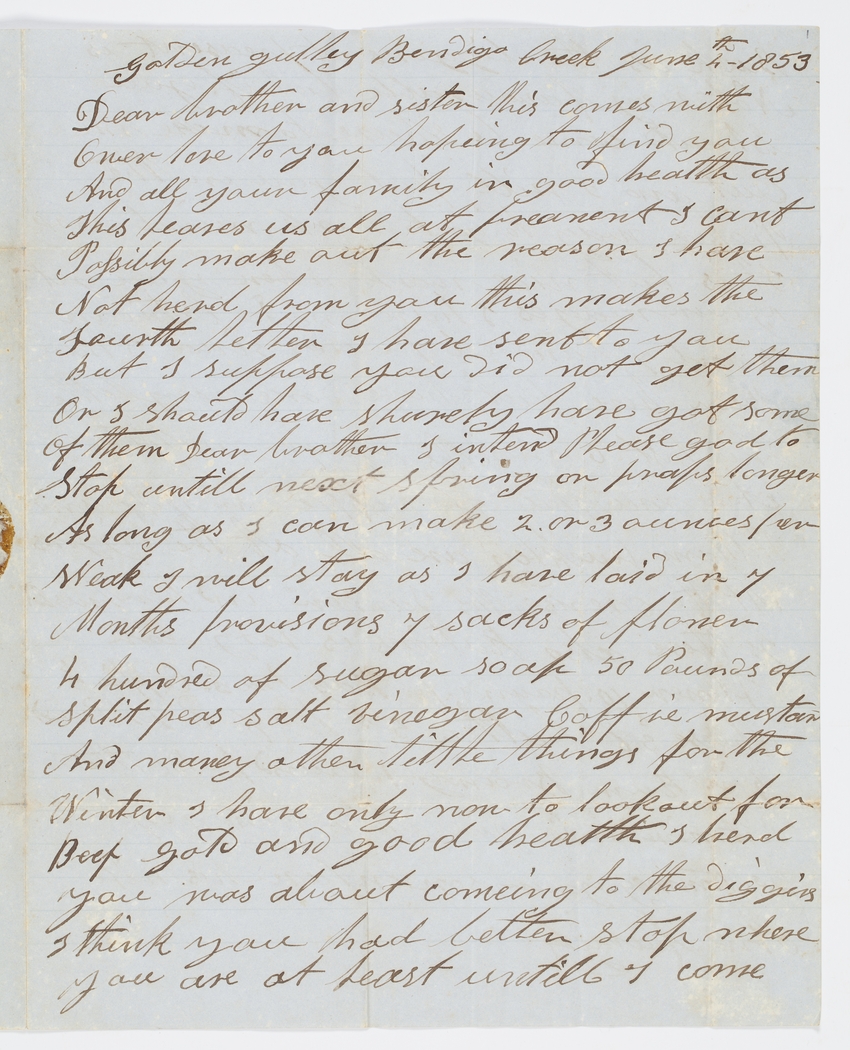 golden gulley Bendigo Creek June 4th-1853
Dear brother and sister this comes with
Ower love to you hopeing to find you
And all your family in good health as
This leaves us all at preanent I cant
Possibly make out the reason I have
Not herd from you this makes the
Fourth letter I have sent to you
But I suppose you did not get them
Or I should have shurely have got some
Of them Dear brother I intend Please god to
Stop untill next spring or praps longer
As long as I can make 2 or 3 ounces per
Weak I will stay as I have laid in 7
Months provisions 7 sacks of flower
4 hundred of sugar soap 50 Pounds of
Split peas salt vinegar Coffie mustar
And maney other little things for the
Winter I have only now to look out for
Beef gold and good health I herd
you was about comeing to the diggins
I think you had better stop where
you are at least untill I come